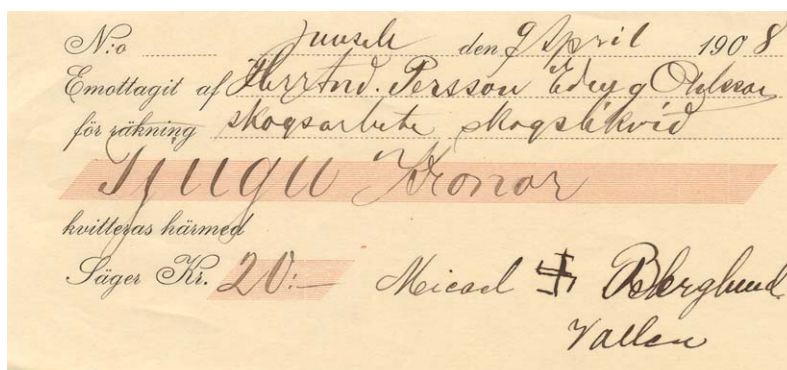 N:o Junsele den 9 April 1908
Emottagit af Herr And. Persson Ohlsson
för räkning skogsarbete skogslikvid
Tjugu Kronor
kvitteras härmed
Säger Kr. 20:—
Micael 卐 Berglund
Vallen